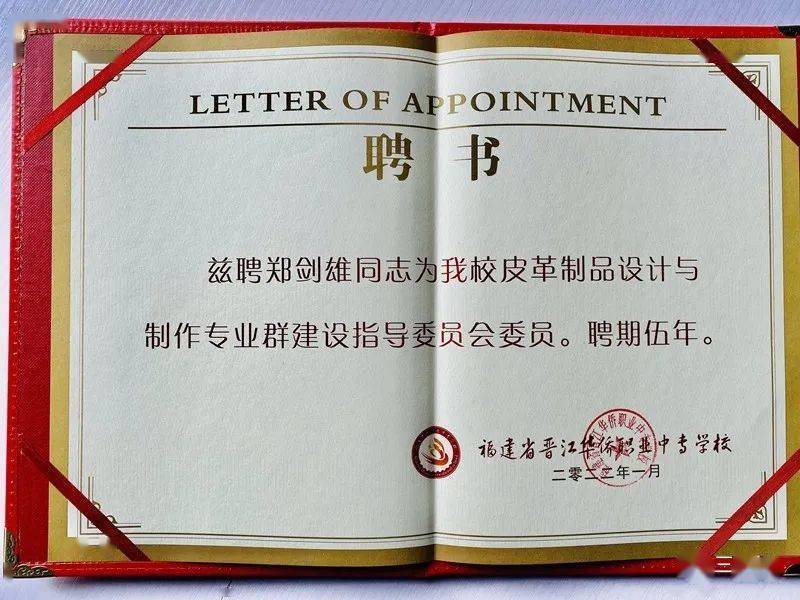 LETTER OF APPOINTMENT
聘书
兹聘郑剑雄同志为我校皮革制品设计与
制作专业群建设指导委员会委员。聘期伍年。
福建省晋江华侨职业中专学校
二零二二年一月
三